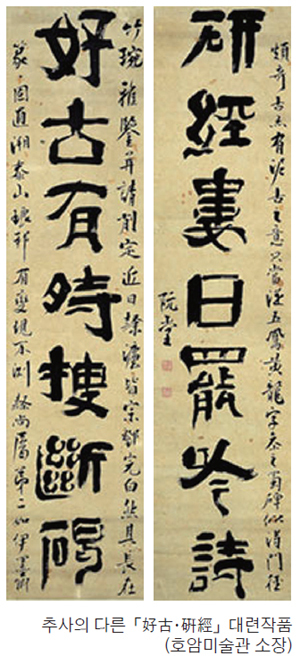 好古有時搜斷碣
竹琬雅鑒幷請削定近日隸法皆宗鄧完白然其長在
篆固直溯泰山琅邪有變現不測隸尙屬第二如伊墨卿
硏經婁日罷吟詩
頗奇古亦有泥古之意只當從五鳳黃龍字參之蜀碑似得門徑
阮堂
추사의 다른「好古·硏經」대련작품
(호암미술관 소장)